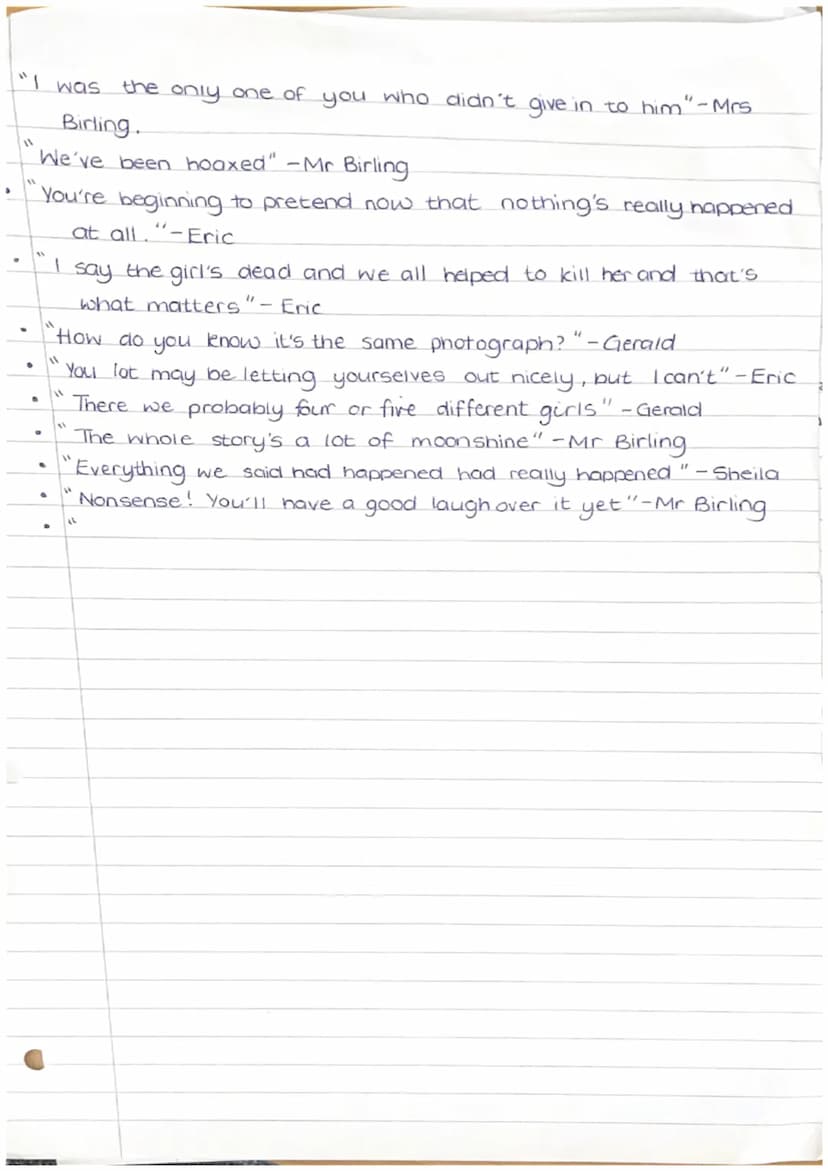 "I was the only one of you who didn't give in to him" - Mrs
Birling.
"We've been hoaxed" - Mr Birling
• "You're beginning to pretend now that nothing's really happened
at all." - Eric
• "I say the girl's dead and we all helped to kill her and that's
what matters" - Eric
• "How do you know it's the same photograph?" - Gerald
• "You lot may be letting yourselves out nicely, but I can't" - Eric
• "There we probably four or five different girls" - Gerald
• "The whole story's a lot of moonshine" - Mr Birling
• "Everything we said had happened had really happened" - Sheila
• "Nonsense! You'll have a good laugh over it yet" - Mr Birling
• "